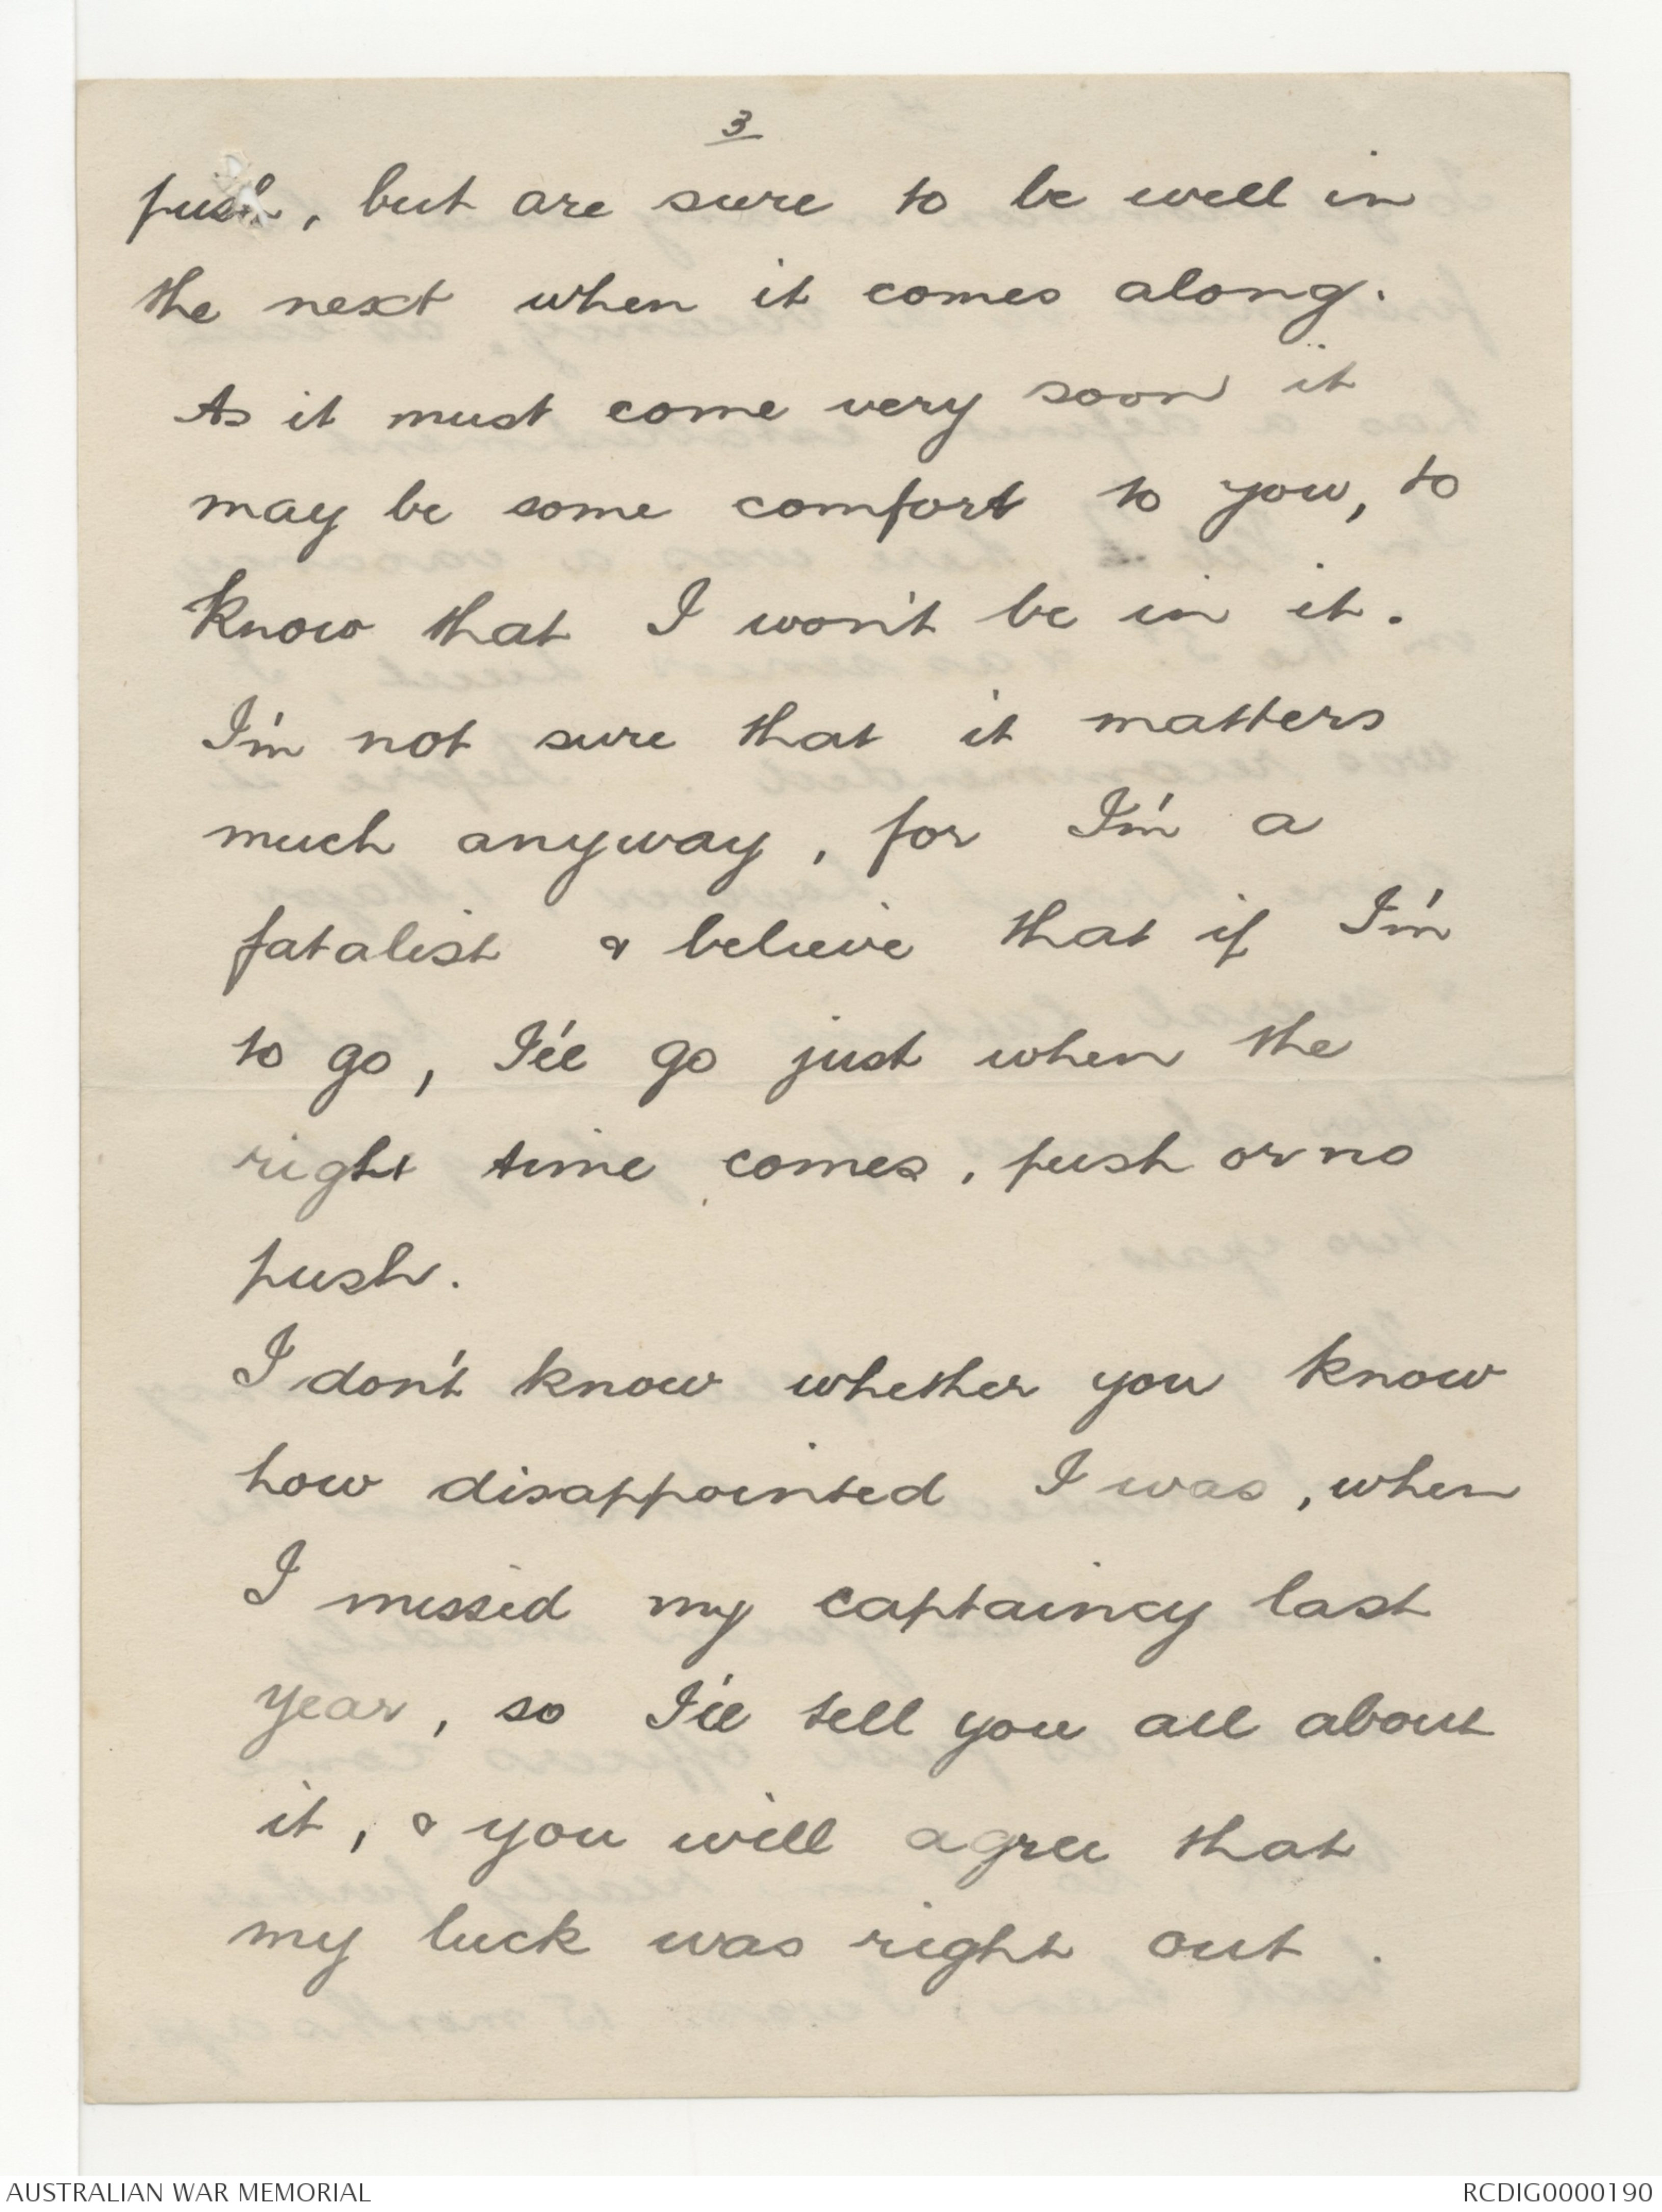 3
push, but are sure to be well in
the next when it comes along.
As it must come very soon it
may be some comfort to you, to
know that I won't be in it.
I'm not sure that it matters
much anyway, for I'm a
fatalist & believe that if I'm
to go, I'll go just when the
right time comes, push or no
push.
I don't know whether you know
how disappointed I was, when
I missed my captaincy last
year, so I'll tell you all about
it, & you will agree that
my luck was right out.
AUSTRALIAN WAR MEMORIAL
RCDIG0000190